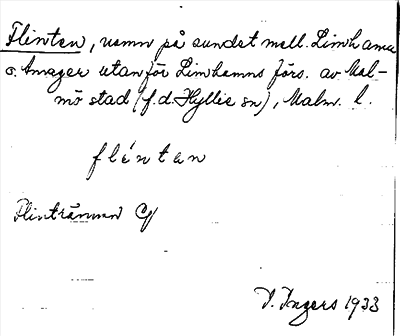 Flinten, namn på sundet mell. Limhamn
o. Amager utanför Limhamns förs. av Mal-
mö stad (f.d. Hyllie sn), Malm. l.
flénten
Flintrännan C/
I. Ingers 1933